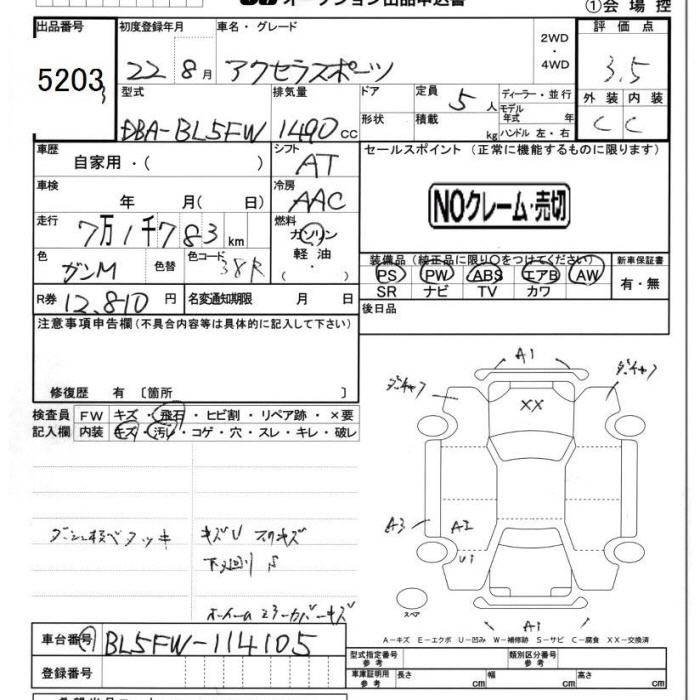 オークション出品申込書
①会場控
出品番号 初度登録年月 車名・グレード 2WD・4WD 評価点
5203 22 8月 アクセラスポーツ 3.5
型式 排気量 ドア 定員 5人 ディーラー・並行 外装 内装
DBA-BL5FW 1490cc 形状 積載 kg モデル年式 年 C C
ハンドル 左・右
車歴 シフト セールスポイント (正常に機能するものに限ります)
自家用・( ) AT
車検 年 月( 日) 冷房 AAC
NOクレーム・売切
走行 7万1千783km 燃料 ガソリン 軽油 ( ・ )
色 ガンM 色替 色コード 38R
装備品 (純正品に限り○をつけてください) 新車保証書
PS PW ABS エアB AW 有・無
SR ナビ TV カワ
R券 12,810円 名変通知期限 月 日
後日品
注意事項申告欄 (不具合内容等は具体的に記入して下さい)
修復歴 有 〔箇所 〕
検査員記入欄 FW キズ・飛石・ヒビ割・リペア跡・×要
内装 キズ・汚レ・コゲ・穴・スレ・キレ・破レ
A1
XX
A3 A2
U1
A1
スペア
キズU スリキズ
下廻りS
ホイールカバーキズ
A-キズ E-エクボ U-凹み W-補修跡 S-サビ C-腐食 XX-交換済
車台番号 BL5FW-114105
型式指定番号 参考 類別区分番号 参考
登録番号
車庫証明用 参考 長さ cm 幅 cm 高さ cm